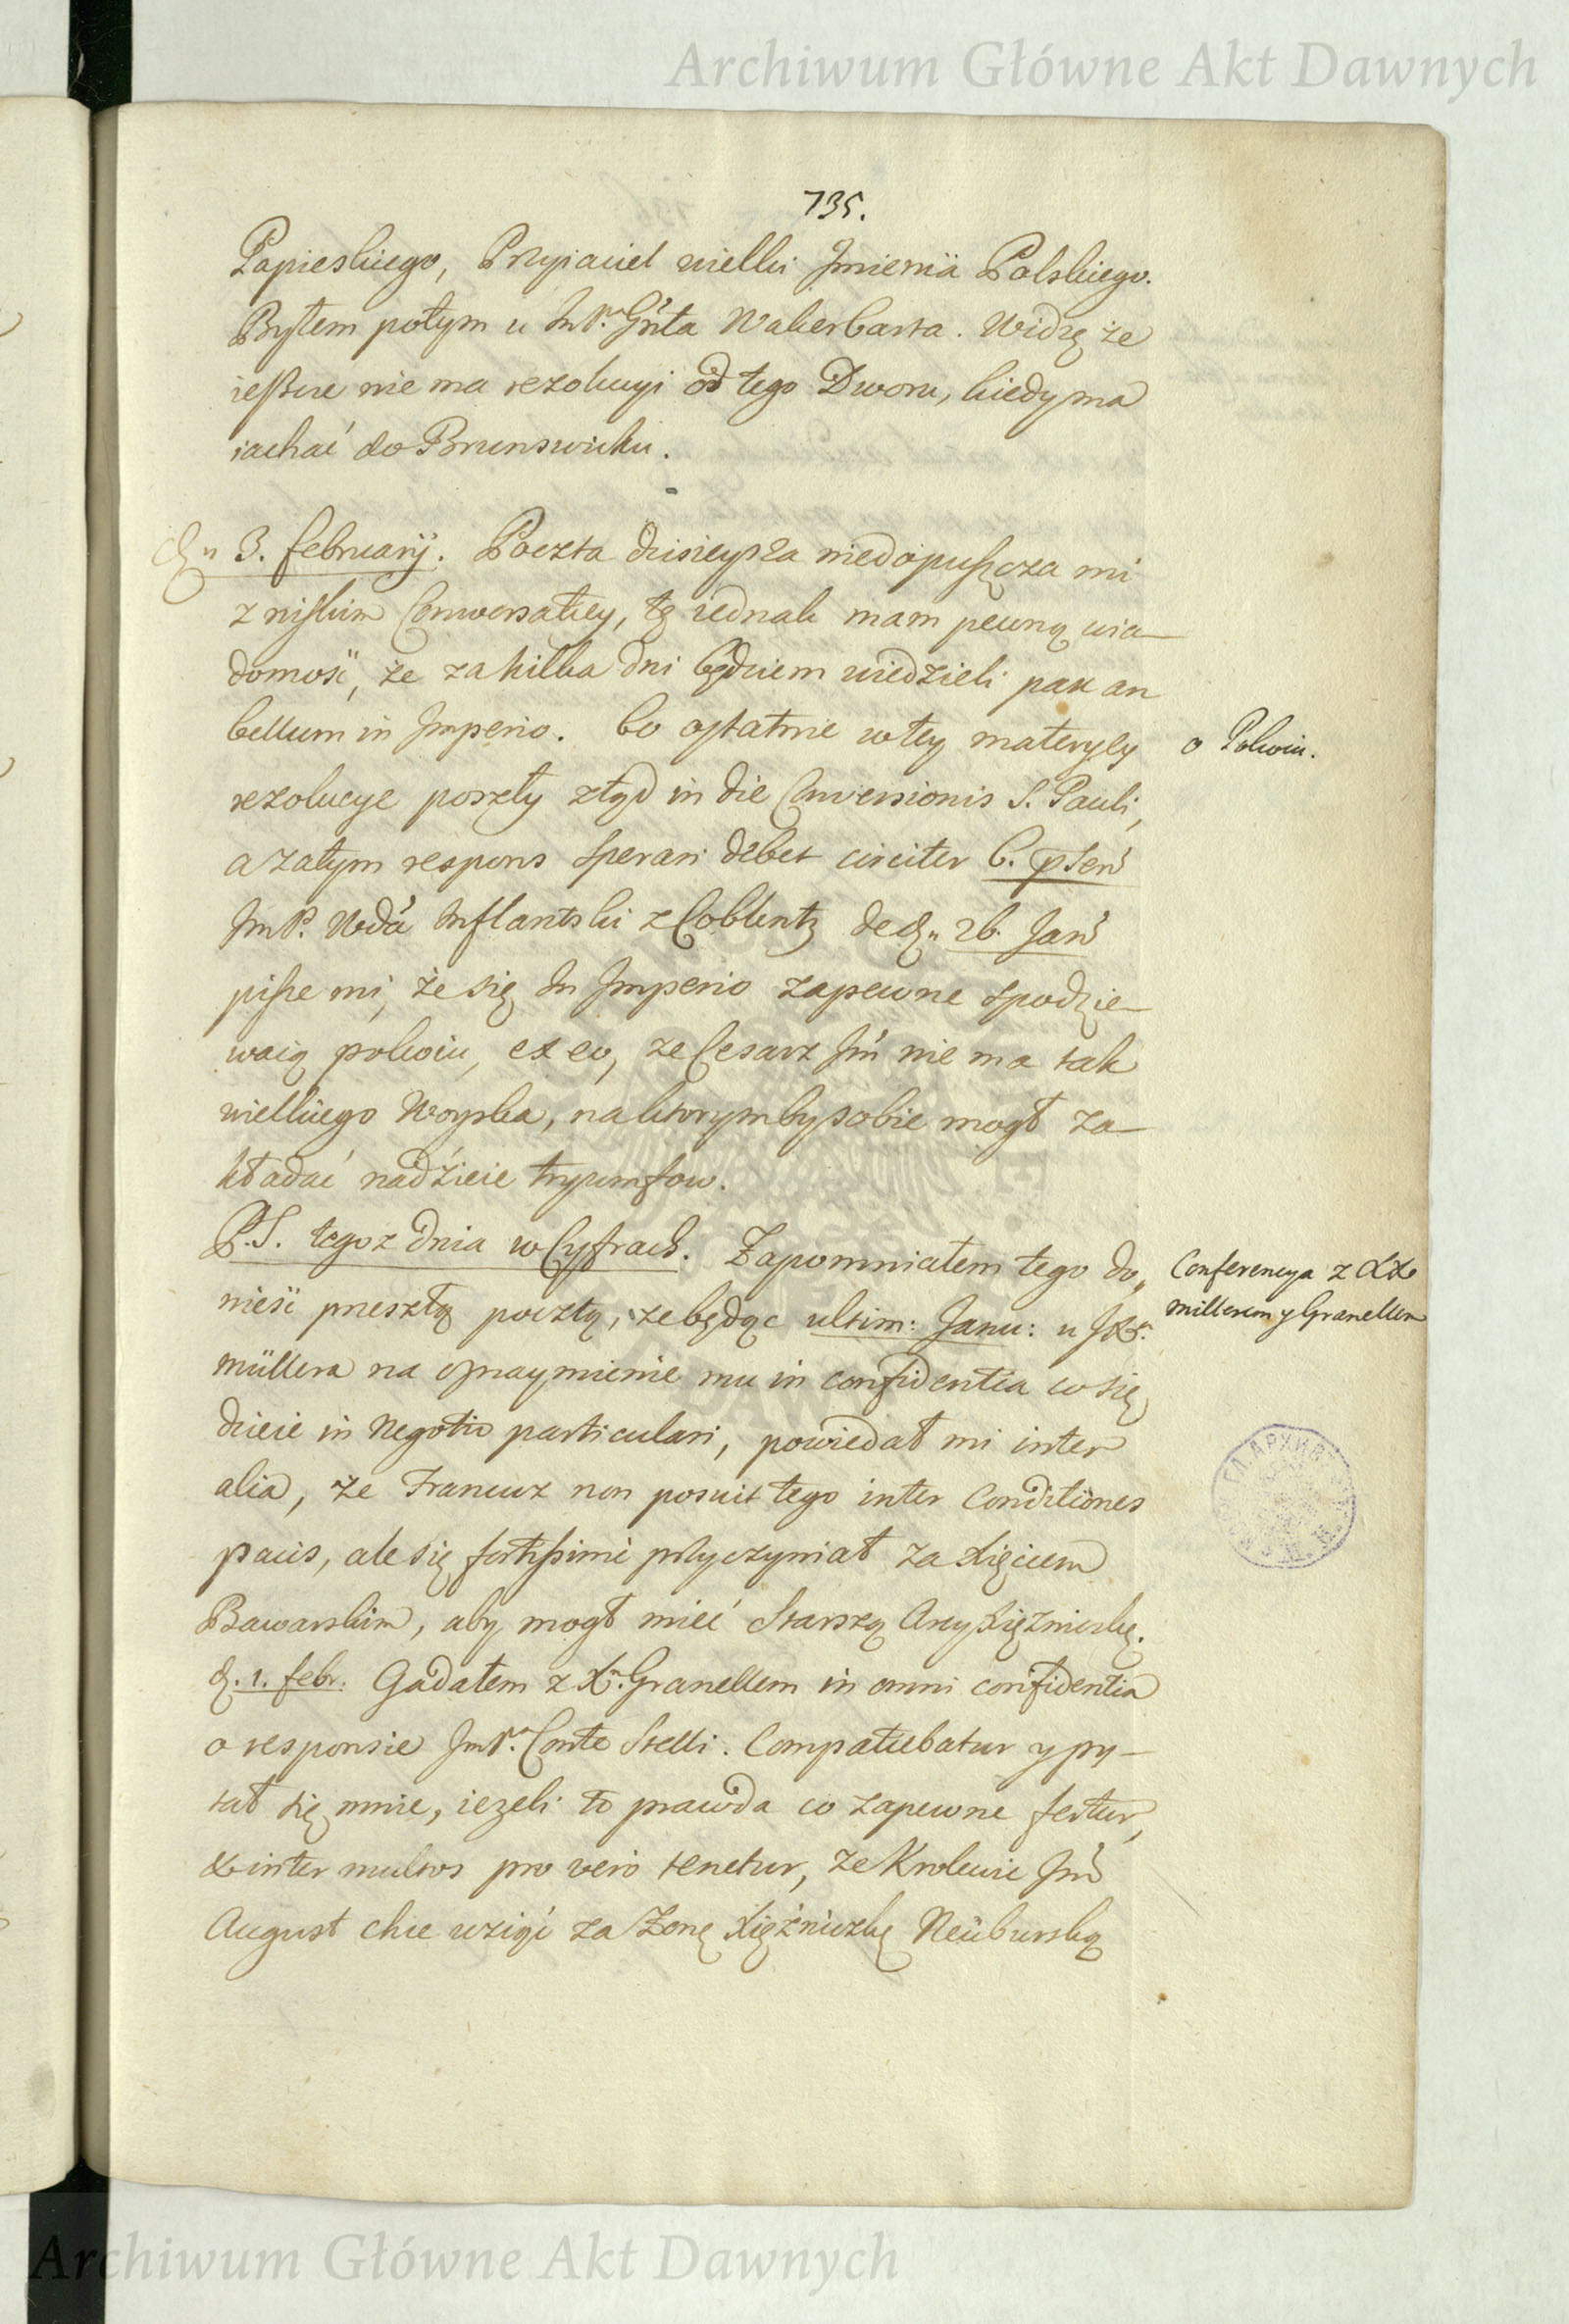 Archiwum Główne Akt Dawnych
735.
Papieskiego, Przyiaciel wielki Imienia Polskiego.
Byłem potym u ImP. Gnła Wakerbarta. Widzę że
ieszcze nie ma rezolucyi od tego Dworu, kiedy ma
iachać do Brunswicku.
3. february. Poczta dzisieysza niedopuszcza mi
z niskim Conversatiey, tę iednak mam pewną wia-
domość, że za kilka dni będziem wiedzieli pax an
bellum in Imperio. bo ostatnie w tey materyiy
rezolucye poszły ztąd in die Conversionis S. Pauli,
a zatym respons sperari debet circiter 6. pSen
o Pokoiu.
ImP. Wda Inflantski z Coblentz de d. 26. Jan
pisze mi, że się in Imperio zapewne spodzie-
waią pokoiu, ex eo, ze Cesarz Jm nie ma tak
wielkiego Woyska, na ktorymby sobie mogł za-
kładać nadzieie tryumfow.
P.S. tegoz dnia w Cyfrach. Zapomniałem tego do,,
nieść preszłą pocztą, ze będąc ultim: Janu: u JX.
Conferencya z XX
millerem y Granellem
müllera na oznaymienie mu in confidentia co się
dzieie in Negotio particulari, powiedał mi inter
alia, ze Francuz non posuit tego inter Conditiones
pacis, ale się fortissimi przyczyniał za Xięciem
Bawarskim, aby mogł mieć Starszą Arcyxiężniczkę.
d. 1. febr. Gadałem z X. Granellem in omni confidentia
o responsie ImP. Conte Stelli. Compatiebatur y py-
tał się mnie, iezeli to prawda co zapewne fertur,
& inter multos pro vero tenetur, ze Krolewic Jm
August chce wziąć za Zonę Xiężniczkę Neüburską
Archiwum Główne Akt Dawnych